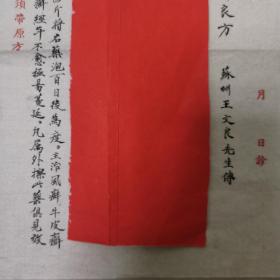 月 日診
蘇州王文良先生傳
良方
斤將右藥泡百日後為度。主治風癬牛皮癬
癬經年不愈極易蔓延，凡屬外擦此藥俱見效
須帶原方